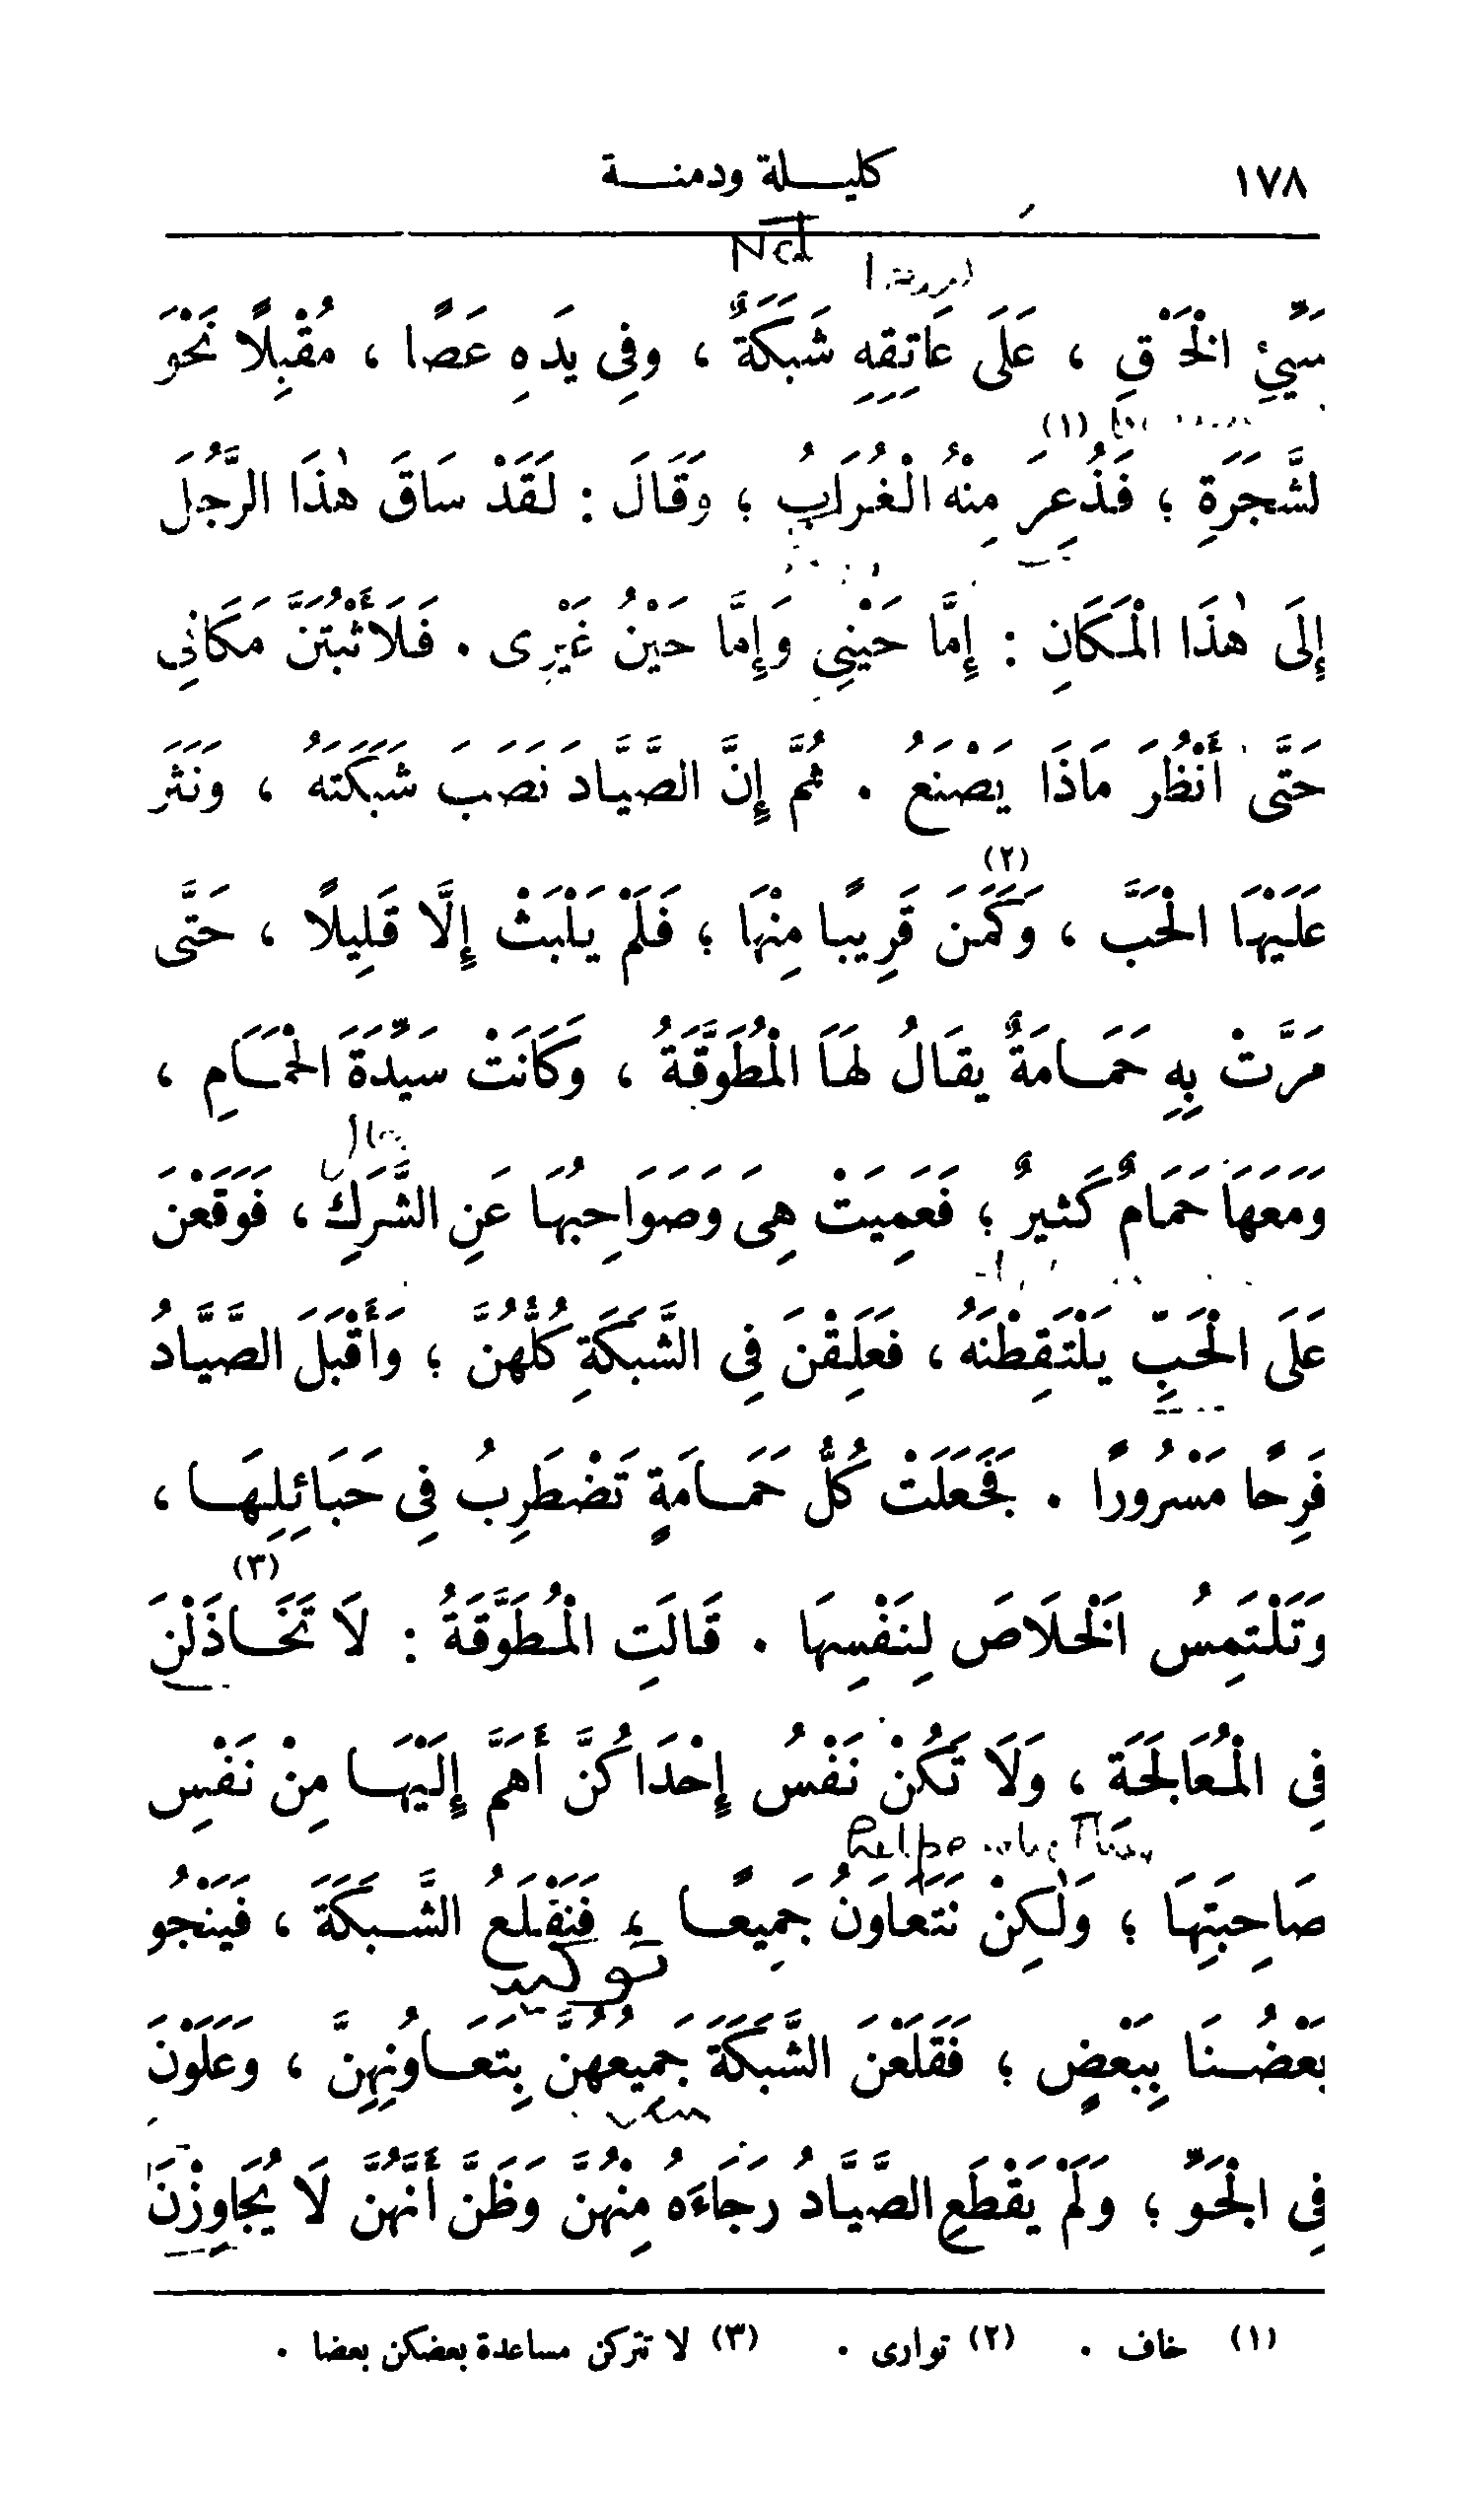 ١٧٨ كليلة ودمنة
Net
سَيِّئِ الْخَلْقِ ، عَلَى عَاتِقِهِ شَبَكَةٌ ، وفِى يَدِهِ عَصًا ، مُقْبِلًا نَحْوَ
لشَّجَرَةِ ؛ فَذُعِرَ (١) مِنْهُ الْغُرَابُ ؛ وَقَالَ : لَقَدْ سَاقَ هٰذَا الرَّجُلَ
إِلَى هٰذَا الْمَكَانِ : إِمَّا حَيْنِي وَإِمَّا حَيْنُ غَيْرِى . فَلَأَثْبُتَنَّ مَكَانِي
حَتَّى أَنْظُرَ مَاذَا يَصْنَعُ . ثُمَّ إِنَّ الصَّيَّادَ نَصَبَ شَبَكَتَهُ ، وَنَثَرَ
عَلَيْهَا الْحَبَّ ، وَكَمَنَ (٢) قَرِيبًا مِنْهَا ؛ فَلَمْ يَلْبَثْ إِلَّا قَلِيلًا ، حَتَّى
مَرَّتْ بِهِ حَمَامَةٌ يقَالُ لَهَا الْمُطَوَّقَةُ ، وَكَانَتْ سَيِّدَةَ الْحَمَامِ ،
وَمَعَهَا حَمَامٌ كَثِيرٌ ؛ فَعَمِيَتْ هِىَ وَصَوَاحِبُهَا عَنِ الشَّرَكِ ، فَوَقَعْنَ
عَلَى الْحَبِّ يَلْتَقِطْنَهُ ، فعَلِقْنَ فِي الشَّبَكَةِ كُلُّهُنَّ ؛ وَأَقْبَلَ الصَّيَّادُ
فَرِحًا مَسْرُورًا . فَجَعَلَتْ كُلُّ حَمَامَةٍ تَضْطَرِبُ فِى حَبَائِلِهَا ،
وَتَلْتَمِسُ الْخَلَاصَ لِنَفْسِهَا . قَالَتِ الْمُطَوَّقَةُ : لَا تَخَاذَلْنَ (٣)
فِى الْمُعَالَجَةِ ، وَلَا تَكُنْ نَفْسُ إِحْدَاكُنَّ أَهَمَّ إِلَيْهَا مِنْ نَفْسِ
صَاحِبَتِهَا ؛ وَلٰكِنْ نَتَعَاوَنُ جَمِيعًا ، فَنَقْلَعُ الشَّبَكَةَ ، فَيَنْجُو
توكيد
بَعْضُنَا بِبَعْضٍ ؛ فَقَلَعْنَ الشَّبَكَةَ جَمِيعُهُنَّ بِتَعَاوُنِهِنَّ ، وَعَلَوْنَ
فِى الْجَوِّ ؛ وَلَمْ يَقْطَعِ الصَّيَّادُ رَجَاءَهُ مِنْهُنَّ وَظَنَّ أَنَّهُنَّ لَا يُجَاوِزْنَ
(١) خاف . (٢) توارى . (٣) لا تتركن مساعدة بعضكن بعضا .